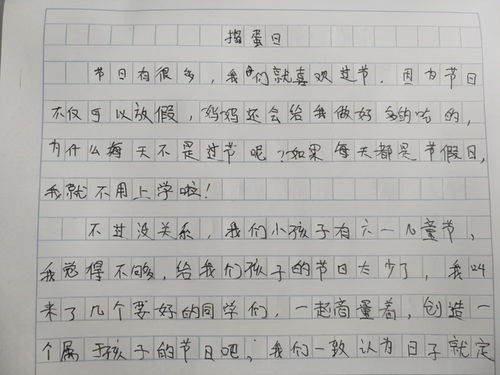 捣蛋日
节日有很多，我们就喜欢过节。因为节日
不仅可以放假，妈妈还会给我做好多的吃的，
为什么每天不是过节呢？如果每天都是节假日，
我就不用上学啦！
不过没关系，我们小孩子有六一儿童节，
我觉得不够，给我们孩子的节日太少了，我叫
来了几个要好的同学们，一起商量着，创造一
个属于孩子的节日吧，我们一致认为日子就定